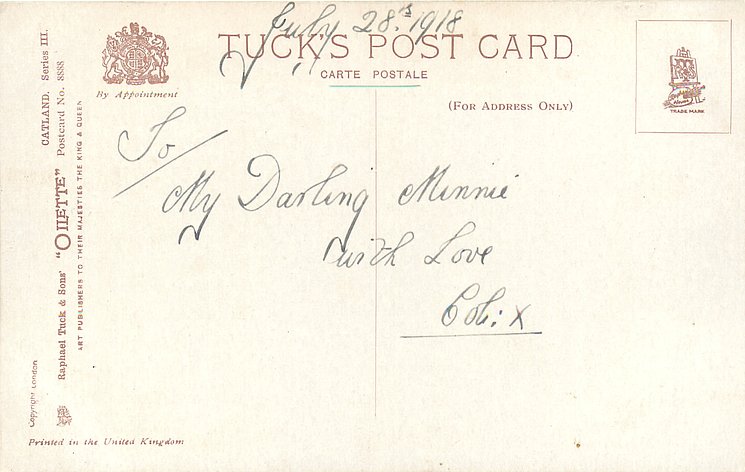 July 28.th 1918
TUCK'S POST CARD
CARTE POSTALE
By Appointment
(FOR ADDRESS ONLY)
TRADE MARK
To
My Darling Minnie
with Love
CATLAND. Series III.
Postcard No. 8888
"OILETTE"
Raphael Tuck & Sons'
ART PUBLISHERS TO THEIR MAJESTIES THE KING & QUEEN
Copyright London
Printed in the United Kingdom